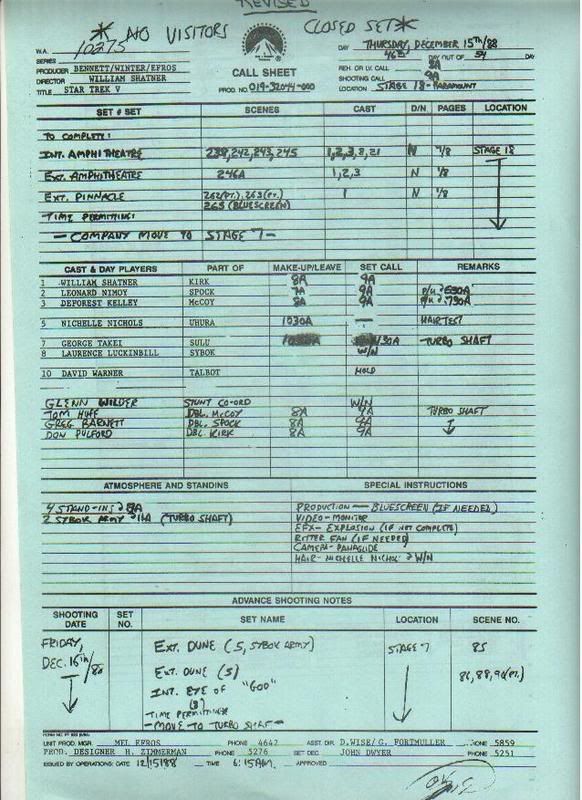 REVISED
* NO VISITORS CLOSED SET *
W.A. 10275
SERIES
PRODUCER BENNETT/WINTER/EFROS
DIRECTOR WILLIAM SHATNER
TITLE STAR TREK V
CALL SHEET
PROD. NO. 019-32044-000
DAY THURSDAY, DECEMBER 15th/88
46th DAY OUT OF 54 DAY
REH. OR I.V. CALL 8A
SHOOTING CALL 9A
LOCATION STAGE 18 - PARAMOUNT
SET # SET SCENES CAST D/N PAGES LOCATION
TO COMPLETE:
INT. AMPHITHEATRE 239,242,243,245 1,2,3,8,21 N 7/8 STAGE 18
EXT. AMPHITHEATRE 246A 1,2,3 N 1/8
EXT. PINNACLE 262(PT.), 263(PT.) 1 N 1/8
265 (BLUESCREEN)
TIME PERMITTING:
- COMPANY MOVE TO STAGE 7 -
CAST & DAY PLAYERS PART OF MAKE-UP/LEAVE SET CALL REMARKS
1 WILLIAM SHATNER KIRK 8A 9A
2 LEONARD NIMOY SPOCK 7A 9A P/U @ 630A
3 DEFOREST KELLEY McCOY 8A 9A P/U @ 730A
5 NICHELLE NICHOLS UHURA 1030A — HAIR TEST
7 GEORGE TAKEI SULU 1130A TURBO SHAFT
8 LAURENCE LUCKINBILL SYBOK W/N
10 DAVID WARNER TALBOT HOLD
GLENN WILDER STUNT CO-ORD W/N
TOM HUFF DBL. McCOY 8A 9A TURBO SHAFT
GREG BARNETT DBL. SPOCK 8A 9A
DON PULFORD DBL. KIRK 8A 9A
ATMOSPHERE AND STANDINS SPECIAL INSTRUCTIONS
4 STAND-INS @ 8A PRODUCTION — BLUESCREEN (IF NEEDED)
2 SYBOK ARMY @ 11A (TURBO SHAFT) VIDEO - MONITOR
EFX - EXPLOSION (IF NOT COMPLETE)
RITTER FAN (IF NEEDED)
CAMERA - PANAGLIDE
HAIR - NICHELLE NICHOL @ W/N
ADVANCE SHOOTING NOTES
SHOOTING DATE SET NO. SET NAME LOCATION SCENE NO.
FRIDAY, DEC. 16th/88 EXT. DUNE (S, SYBOK ARMY) STAGE 7 85
EXT. DUNE (S) 86,88,90(PT.)
INT. EYE OF "GOD"
TIME PERMITTING
- MOVE TO TURBO SHAFT -
UNIT PROD. MGR. MEL EFROS PHONE 4642 ASST. DIR. D.WISE/G. FORTMULLER PHONE 5859
PROD. DESIGNER H. ZIMMERMAN PHONE 5276 SET DEC. JOHN DWYER PHONE 5251
ISSUED BY OPERATIONS: DATE 12/15/88 TIME 6:15AM. APPROVED